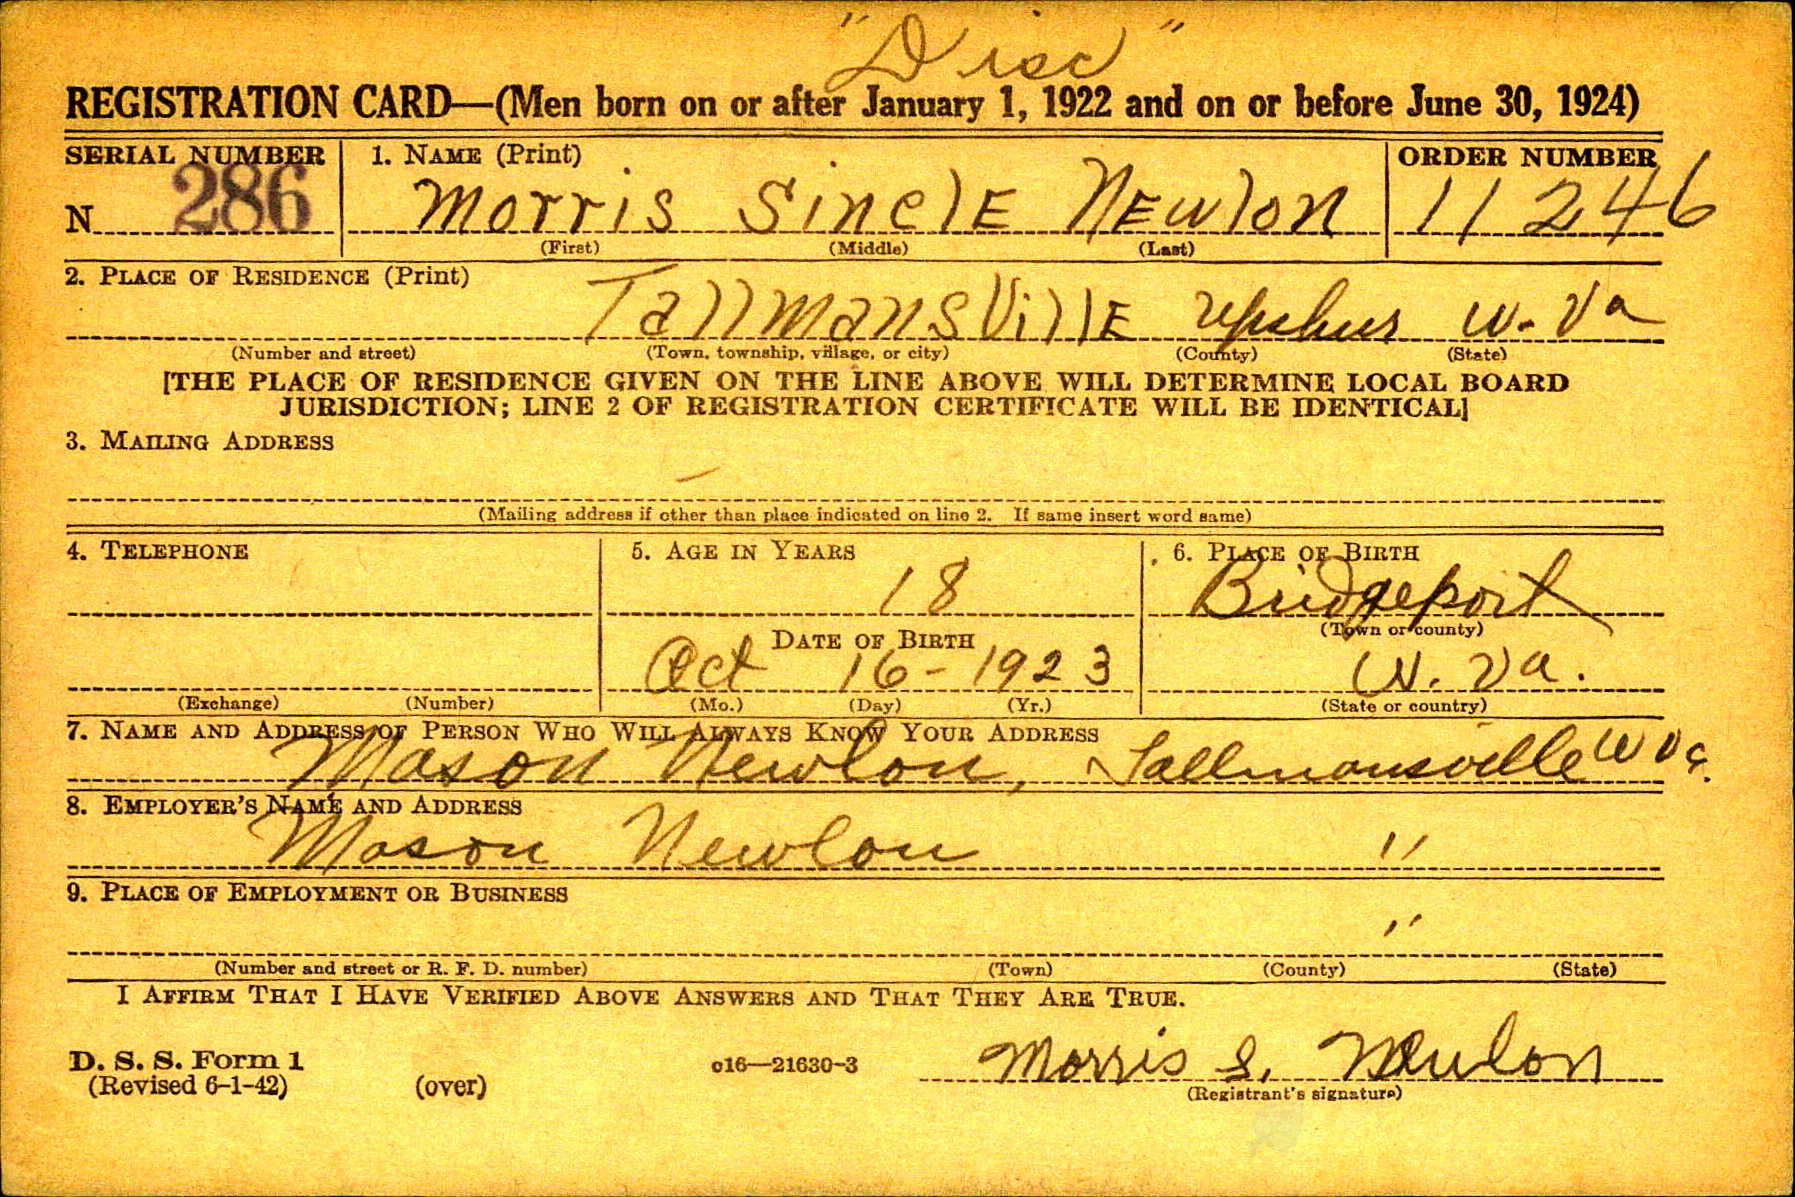 "Disc"
REGISTRATION CARD—(Men born on or after January 1, 1922 and on or before June 30, 1924)
SERIAL NUMBER 1. NAME (Print) ORDER NUMBER
N 286 Morris Sincle Newlon 11246
(First) (Middle) (Last)
2. PLACE OF RESIDENCE (Print)
Tallmansville Upshur W. Va
(Number and street) (Town, township, village, or city) (County) (State)
[THE PLACE OF RESIDENCE GIVEN ON THE LINE ABOVE WILL DETERMINE LOCAL BOARD
JURISDICTION; LINE 2 OF REGISTRATION CERTIFICATE WILL BE IDENTICAL]
3. MAILING ADDRESS
(Mailing address if other than place indicated on line 2. If same insert word same)
4. TELEPHONE 5. AGE IN YEARS 6. PLACE OF BIRTH
18 Bridgeport
DATE OF BIRTH (Town or county)
Oct 16 - 1923 W. Va.
(Exchange) (Number) (Mo.) (Day) (Yr.) (State or country)
7. NAME AND ADDRESS OF PERSON WHO WILL ALWAYS KNOW YOUR ADDRESS
Mason Newlon, Tallmansville W Va.
8. EMPLOYER'S NAME AND ADDRESS
Mason Newlon "
9. PLACE OF EMPLOYMENT OR BUSINESS
"
(Number and street or R. F. D. number) (Town) (County) (State)
I AFFIRM THAT I HAVE VERIFIED ABOVE ANSWERS AND THAT THEY ARE TRUE.
D. S. S. Form 1 c16—21630-3 Morris S. Newlon
(Revised 6-1-42) (over) (Registrant's signature)